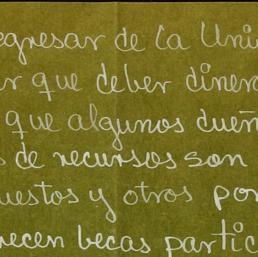 egresar de la Uni
ar que deber diner
que algunos dueñ
s de recursos son
uestos y otros por
recen becas partic